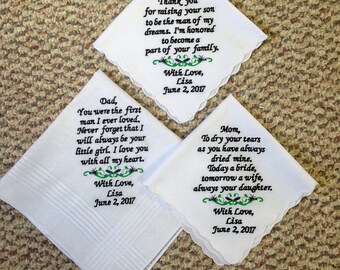 Thank you
for raising your son
to be the man of my
dreams. I'm honored
to become a
part of your family.
With Love,
Lisa
June 2, 2017
Dad,
You were the first
man I ever loved,
Never forget that I
will always be your
little girl. I love you
with all my heart.
With Love,
Lisa
June 2, 2017
Mom,
To dry your tears
as you have always
dried mine,
Today a bride,
tomorrow a wife,
always your daughter.
With Love,
Lisa
June 2, 2017